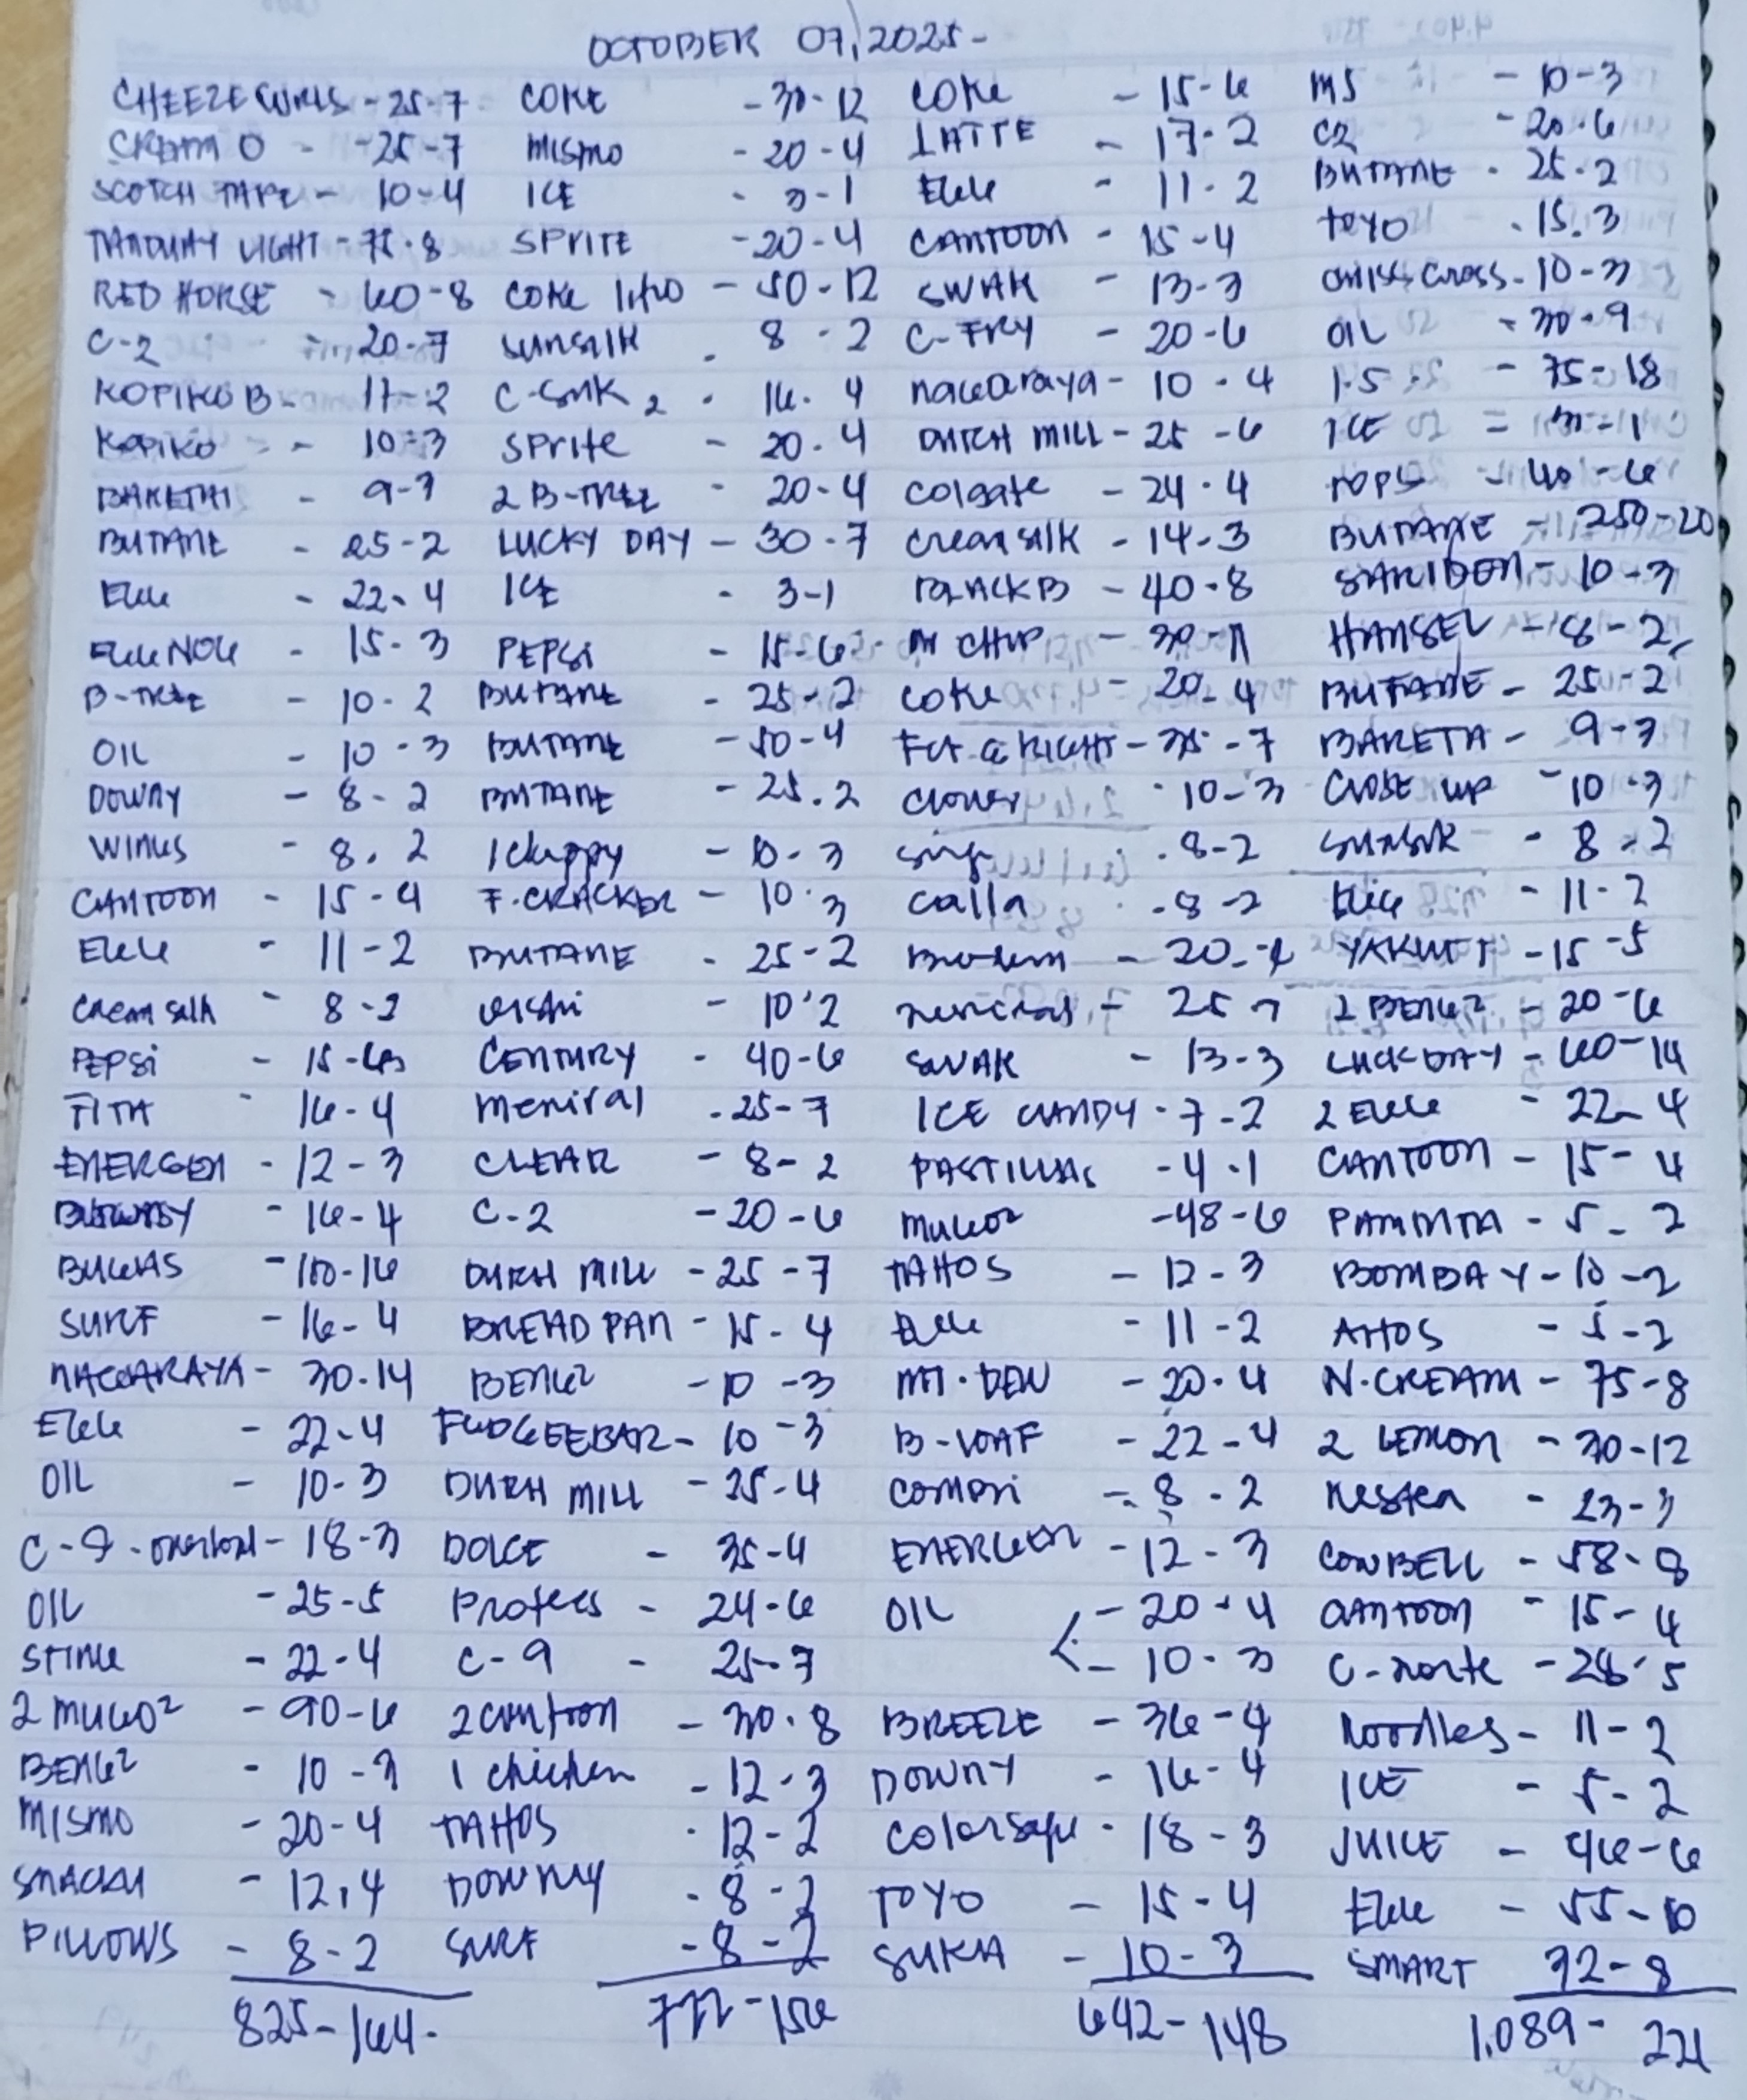 OCTOBER 07, 2025-
CHEEZE CURLS - 25-7
CREAM O - 25-7
SCOTCH TAPE - 10-4
TANDUAY LIGHT - 75-8
RED HORSE - 60-8
C-2 - 20-7
KOPIKO B - 11-2
KOPIKO - 10-3
BARETA - 9-3
BUTANE - 25-2
- 22-4
- 15-3
B-TREE - 10-2
OIL - 10-3
DOWNY - 8-2
WINGS - 8-2
CANTOON - 15-4
- 11-2
CREAM SILK - 8-2
PEPSI - 15-6
FITA - 16-4
ENERGEN - 12-3
- 16-4
BUGAS - 100-16
SURF - 16-4
NAGARAYA - 30-14
- 22-4
OIL - 10-3
C-9 - 18-3
OIL - 25-5
STING - 22-4
2 - 90-6
BENG² - 10-3
MISMO - 20-4
- 12-4
PILLOWS - 8-2
825-164-
COKE - 30-12
MISMO - 20-4
ICE - 3-1
SPRITE - 20-4
COKE litro - 50-12
SUNSILK - 8-2
C-SILK 2 - 16-4
SPRITE - 20-4
2 B-TREE - 20-4
LUCKY DAY - 30-7
ICE - 3-1
PEPSI - 15-6
BUTANE - 25-2
BUTANE - 50-4
BUTANE - 25-2
- 10-3
F. CRACKER - 10-3
BUTANE - 25-2
- 10-2
CENTURY - 40-6
- 25-7
CLEAR - 8-2
C-2 - 20-6
DUTCH MILL - 25-7
BREAD PAN - 15-4
BENG² - 10-3
FUDGEEBAR - 10-3
DUTCH MILL - 25-4
DOLCE - 35-4
- 24-6
C-9 - 25-7
2 CANTOON - 30-8
1 chicken - 12-3
TAHOS - 12-2
DOWNY - 8-2
SURF - 8-2
777-156
COKE - 15-6
LATTE - 17-2
- 11-2
CANTOON - 15-4
SWAK - 13-3
C-FRY - 20-6
nagaraya - 10-4
DUTCH MILL - 25-6
Colgate - 24-4
Creamsilk - 14-3
BLACK B - 40-8
- 30-11
COKE - 20-4
FIT & RIGHT - 35-7
Clover - 10-3
- 8-2
Calla - 8-2
- 20-4
- 25-7
SWAK - 13-3
ICE CANDY - 7-2
PASTILLAS - 4-1
- 48-6
TAHOS - 12-3
- 11-2
MT. DEW - 20-4
B-LOAF - 22-4
- 8-2
ENERGEN - 12-3
OIL - 20-4
- 10-3
BREEZE - 36-4
DOWNY - 16-4
Colorsafe - 18-3
TOYO - 15-4
SUKA - 10-3
642-148
- 10-3
C2 - 20-6
BUTANE - 25-2
TOYO - 15-3
CRISS CROSS - 10-3
OIL - 30-9
1.5 - 75-18
ICE - 3-1
TOPS - 40-6
BUTANE - 250-20
SARIDON - 10-3
HANSEL - 8-2
BUTANE - 25-2
BARETA - 9-3
CLOSE UP - 10-3
SUNSILK - 8-2
- 11-2
YAKULT - 15-5
2 BENG² - 20-6
LUCKY DAY - 60-14
2 - 22-4
CANTOON - 15-4
PAMINTA - 5-2
BOMBAY - 10-2
AHOS - 5-2
N. CREAM - 75-8
2 LEMON - 30-12
- 23-3
COWBELL - 58-8
CANTOON - 15-4
C-norte - 28-5
Noodles - 11-2
ICE - 5-2
JUICE - 46-6
- 55-10
SMART 32-8
1,089-221